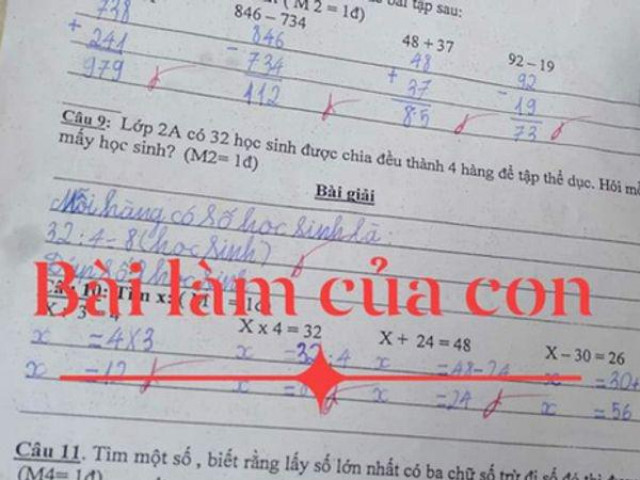 ( M 2 = 1đ) bài tập sau:
738 846 – 734 48 + 37 92 – 19
+ 846 48 92
241 - 734 + 37 - 19
979 112 85 73
Câu 9: Lớp 2A có 32 học sinh được chia đều thành 4 hàng để tập thể dục. Hỏi
mấy học sinh? (M2= 1đ)
Bài giải
Mỗi hàng có số học sinh là:
32 : 4 = 8 (học sinh)
Đáp số 8 học sinh
Bài làm của con
Câu 10: Tìm x:
X x 4 = 32 X + 24 = 48 X – 30 = 26
x = 4 x 3 x = 32 : 4 x = 48 - 24 x = 30+
x = 12 x = 8 x = 24 x = 56
Câu 11. Tìm một số , biết rằng lấy số lớn nhất có ba chữ số trừ đi số đó thì
(M4= 1đ)